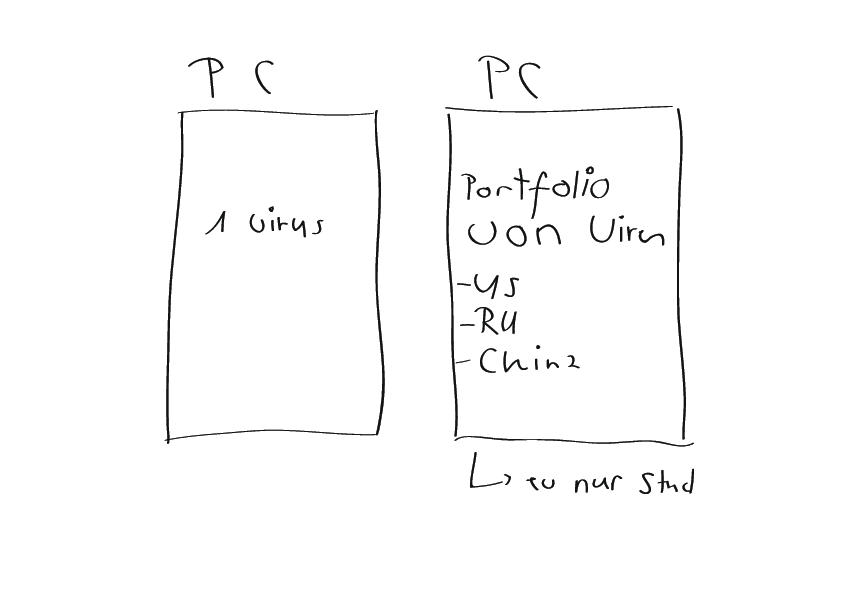 PC
1 Virus
PC
Portfolio
von Viren
-US
-RU
-China
nur